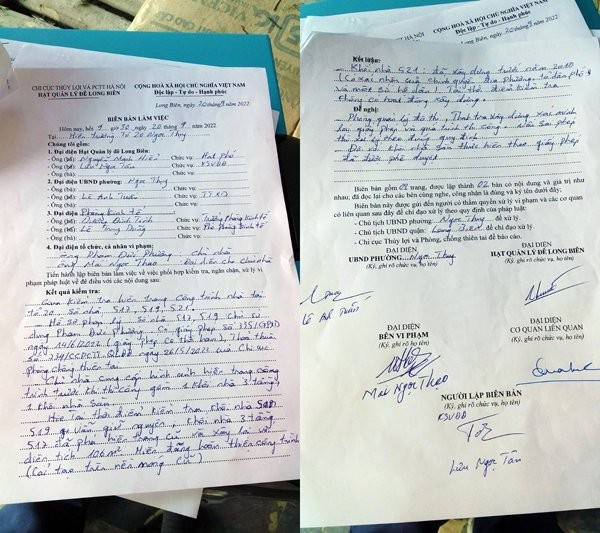 CHI CỤC THỦY LỢI VÀ PCTT HÀ NỘI
HẠT QUẢN LÝ ĐÊ LONG BIÊN
CỘNG HOÀ XÃ HỘI CHỦ NGHĨA VIỆT NAM
Độc lập - Tự do - Hạnh phúc
Long Biên, ngày 20 tháng 9 năm 2022
BIÊN BẢN LÀM VIỆC
Hôm nay, hồi 9 giờ 30 ngày 20 tháng 9 năm 2022
Tại: Hiện trường Tổ 20 Ngọc Thụy
Chúng tôi gồm:
1. Đại diện Hạt Quản lý đê Long Biên:
- Ông (bà): Nguyễn Mạnh Hiển Chức vụ: Hạt phó
- Ông (bà): Liêu Ngọc Tân Chức vụ: KSVĐĐ
2. Đại diện UBND phường: Ngọc Thụy
- Ông (bà): Lê Anh Tuấn Chức vụ: TTXD
- Ông (bà): Chức vụ:
3. Đại diện Phòng Kinh tế
- Ông (bà): Dương Đình Trình Chức vụ: Trưởng Phòng Kinh tế
- Ông (bà): Lê Chức vụ: Phó Phòng Kinh tế
4. Đại diện tổ chức, cá nhân vi phạm:
Ông Phạm Đức Phường Chủ nhà
Mai Ngọc Thao Đại diện cho Chủ nhà
Tiến hành lập biên bản làm việc về việc phối hợp kiểm tra, ngăn chặn, xử lý vi
phạm pháp luật về đê điều với các nội dung sau:
Kết quả kiểm tra:
Qua kiểm tra hiện trạng công trình nhà tại
tổ 20 Số nhà 517, 519, 521.
Hồ sơ pháp lý số nhà 517, 519 Chủ sử
dụng Phạm Đức Phường có giấy phép số 335/GPXD
ngày 14/6/2021 (giấy phép có thời hạn), Thỏa thuận
ngày 26/5/2021 của Chi cục
phòng chống thiên tai.
Chủ nhà cung cấp hình ảnh hiện trạng công
trình trước khi thi công gồm 1 khối nhà 3 tầng,
1 khối nhà sàn.
Tại thời điểm kiểm tra, Khối nhà
519 vẫn giữ nguyên, Khối nhà 3 tầng
517 đã phá hiện trạng cũ và xây lại với
diện tích 106 m². Hiện đang hoàn thiện công trình
(Cải tạo trên nền móng cũ)
Kết luận:
- Khối nhà 521: đã xây dựng trước năm 2010
(Có xác nhận của chính quyền địa phương, tổ dân phố
và một số hộ dân). Tại thời điểm kiểm tra
không có hoạt động xây dựng.
Đề nghị:
- Phòng quản lý đô thị, Thanh tra xây dựng xác minh
lại giấy phép và quá trình thi công. Nếu sai phép
thì xử lý theo quy định.
Đối với khối nhà sàn thực hiện theo giấy phép
đã được phê duyệt.
Biên bản gồm 02 trang, được lập thành 02 bản có nội dung và giá trị như
nhau; đã đọc lại cho các bên cùng nghe, công nhận là đúng và ký tên dưới đây;
Biên bản này được gửi đến người có thẩm quyền xử lý vi phạm và các cơ quan
có liên quan sau đây để chỉ đạo xử lý theo quy định của pháp luật:
- Chủ tịch UBND phường: Ngọc Thụy để xử lý.
- Chủ tịch UBND quận: Long Biên để chỉ đạo xử lý.
- Chi cục Thủy lợi và Phòng, chống thiên tai để báo cáo.
ĐẠI DIỆN
UBND PHƯỜNG Ngọc Thụy
ĐẠI DIỆN
HẠT QUẢN LÝ ĐÊ LONG BIÊN
Lê Anh Tuấn
ĐẠI DIỆN
BÊN VI PHẠM
(Ký, ghi rõ chức vụ, họ tên)
Mai Ngọc Thao
ĐẠI DIỆN
CƠ QUAN LIÊN QUAN
(Ký, ghi rõ chức vụ, họ tên)
NGƯỜI LẬP BIÊN BẢN
(Ký, ghi rõ chức vụ, họ tên)
KSVĐĐ
Liêu Ngọc Tân